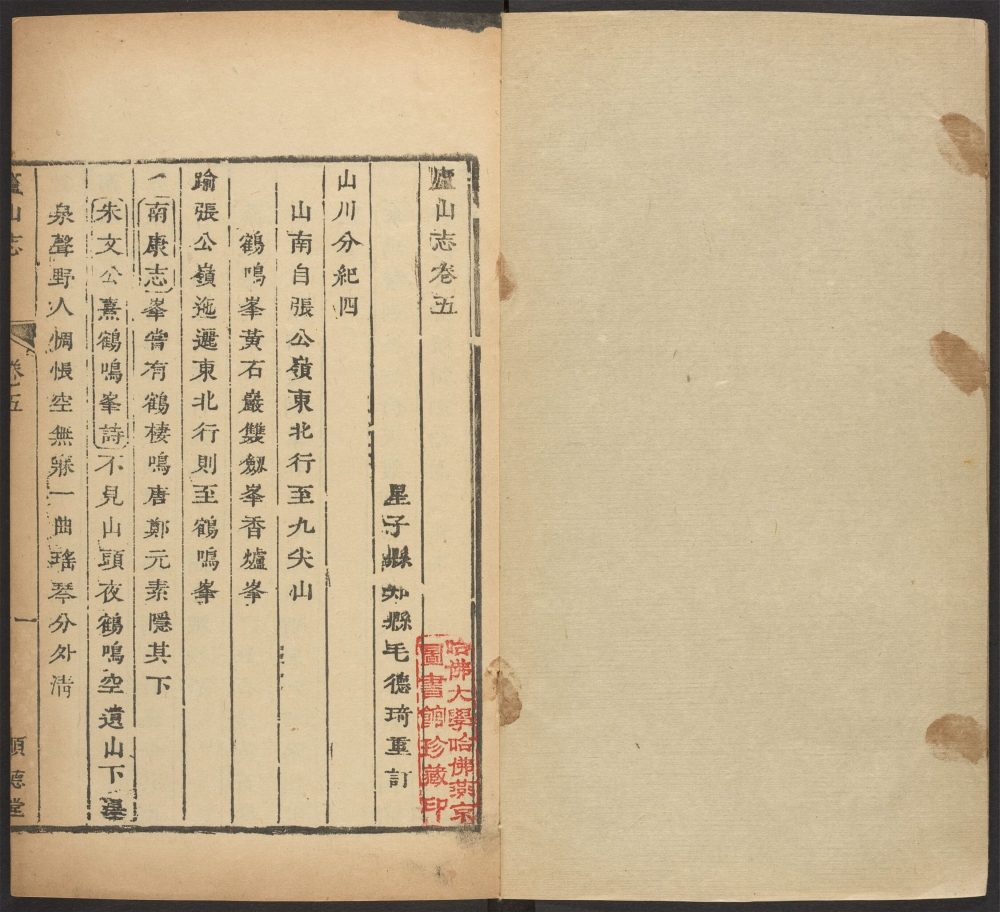 廬山志卷五
星子縣知縣毛德琦重訂
山川分紀四
山南自張公嶺東北行至九尖山
鶴鳴峯黃石巖雙劔峯香爐峯
踰張公嶺迤邐東北行則至鶴鳴峯
南康志峯嘗有鶴棲鳴唐鄭元素隱其下
朱文公熹鶴鳴峯詩不見山頭夜鶴鳴空遺山下瀑
泉聲野人惆悵空無寐一曲瑤琴分外清
廬山志
卷五
一
順德堂
哈佛大學哈佛燕京
圖書館珍藏印